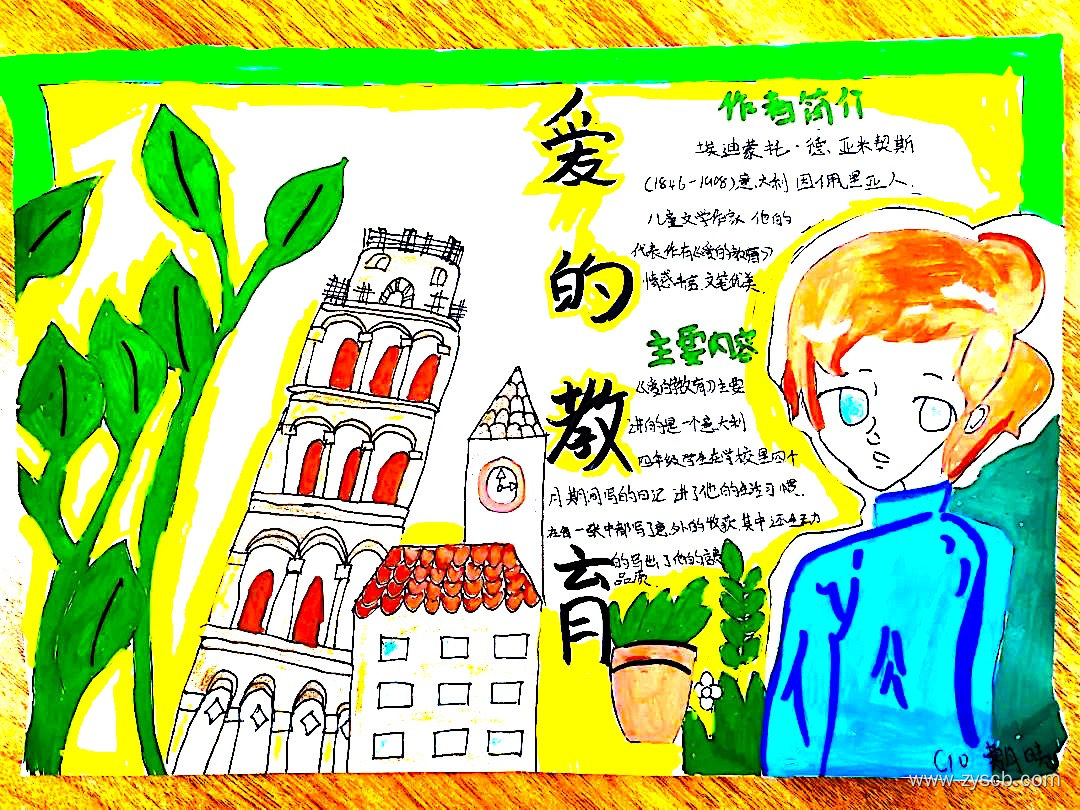 爱的教育
作者简介
埃迪蒙托·德·亚米契斯
(1846-1908)意大利 因佩里亚人.
儿童文学作家 他的
代表作有《爱的教育》
情感丰富.文笔优美.
主要内容
《爱的教育》主要
讲的是一个意大利
四年级学生在学校里四个
月期间写的日记 讲了他的生活习惯.
在每一张中都写了意外的收获 其中还
的写出了他的
品质
www.zyscb.com